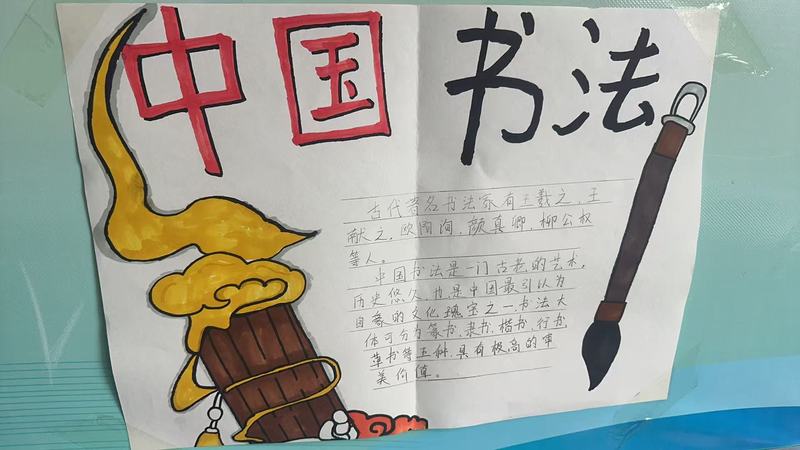 中国书法
古代著名书法家有王羲之,王
献之,欧阳询,颜真卿,柳公权
等人。
中国书法是一门古老的艺术,
历史悠久,是中国最引以为
自豪的文化瑰宝之一.书法大
体可分为篆书.隶书.楷书.行书
草书等五种.具有极高的审
美价值。